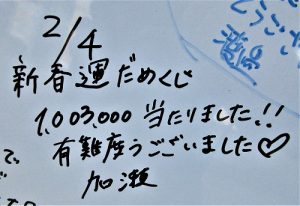 2/4
新春運だめくじ
1,003,000 当たりました!!
有難度うございました♡
加瀬